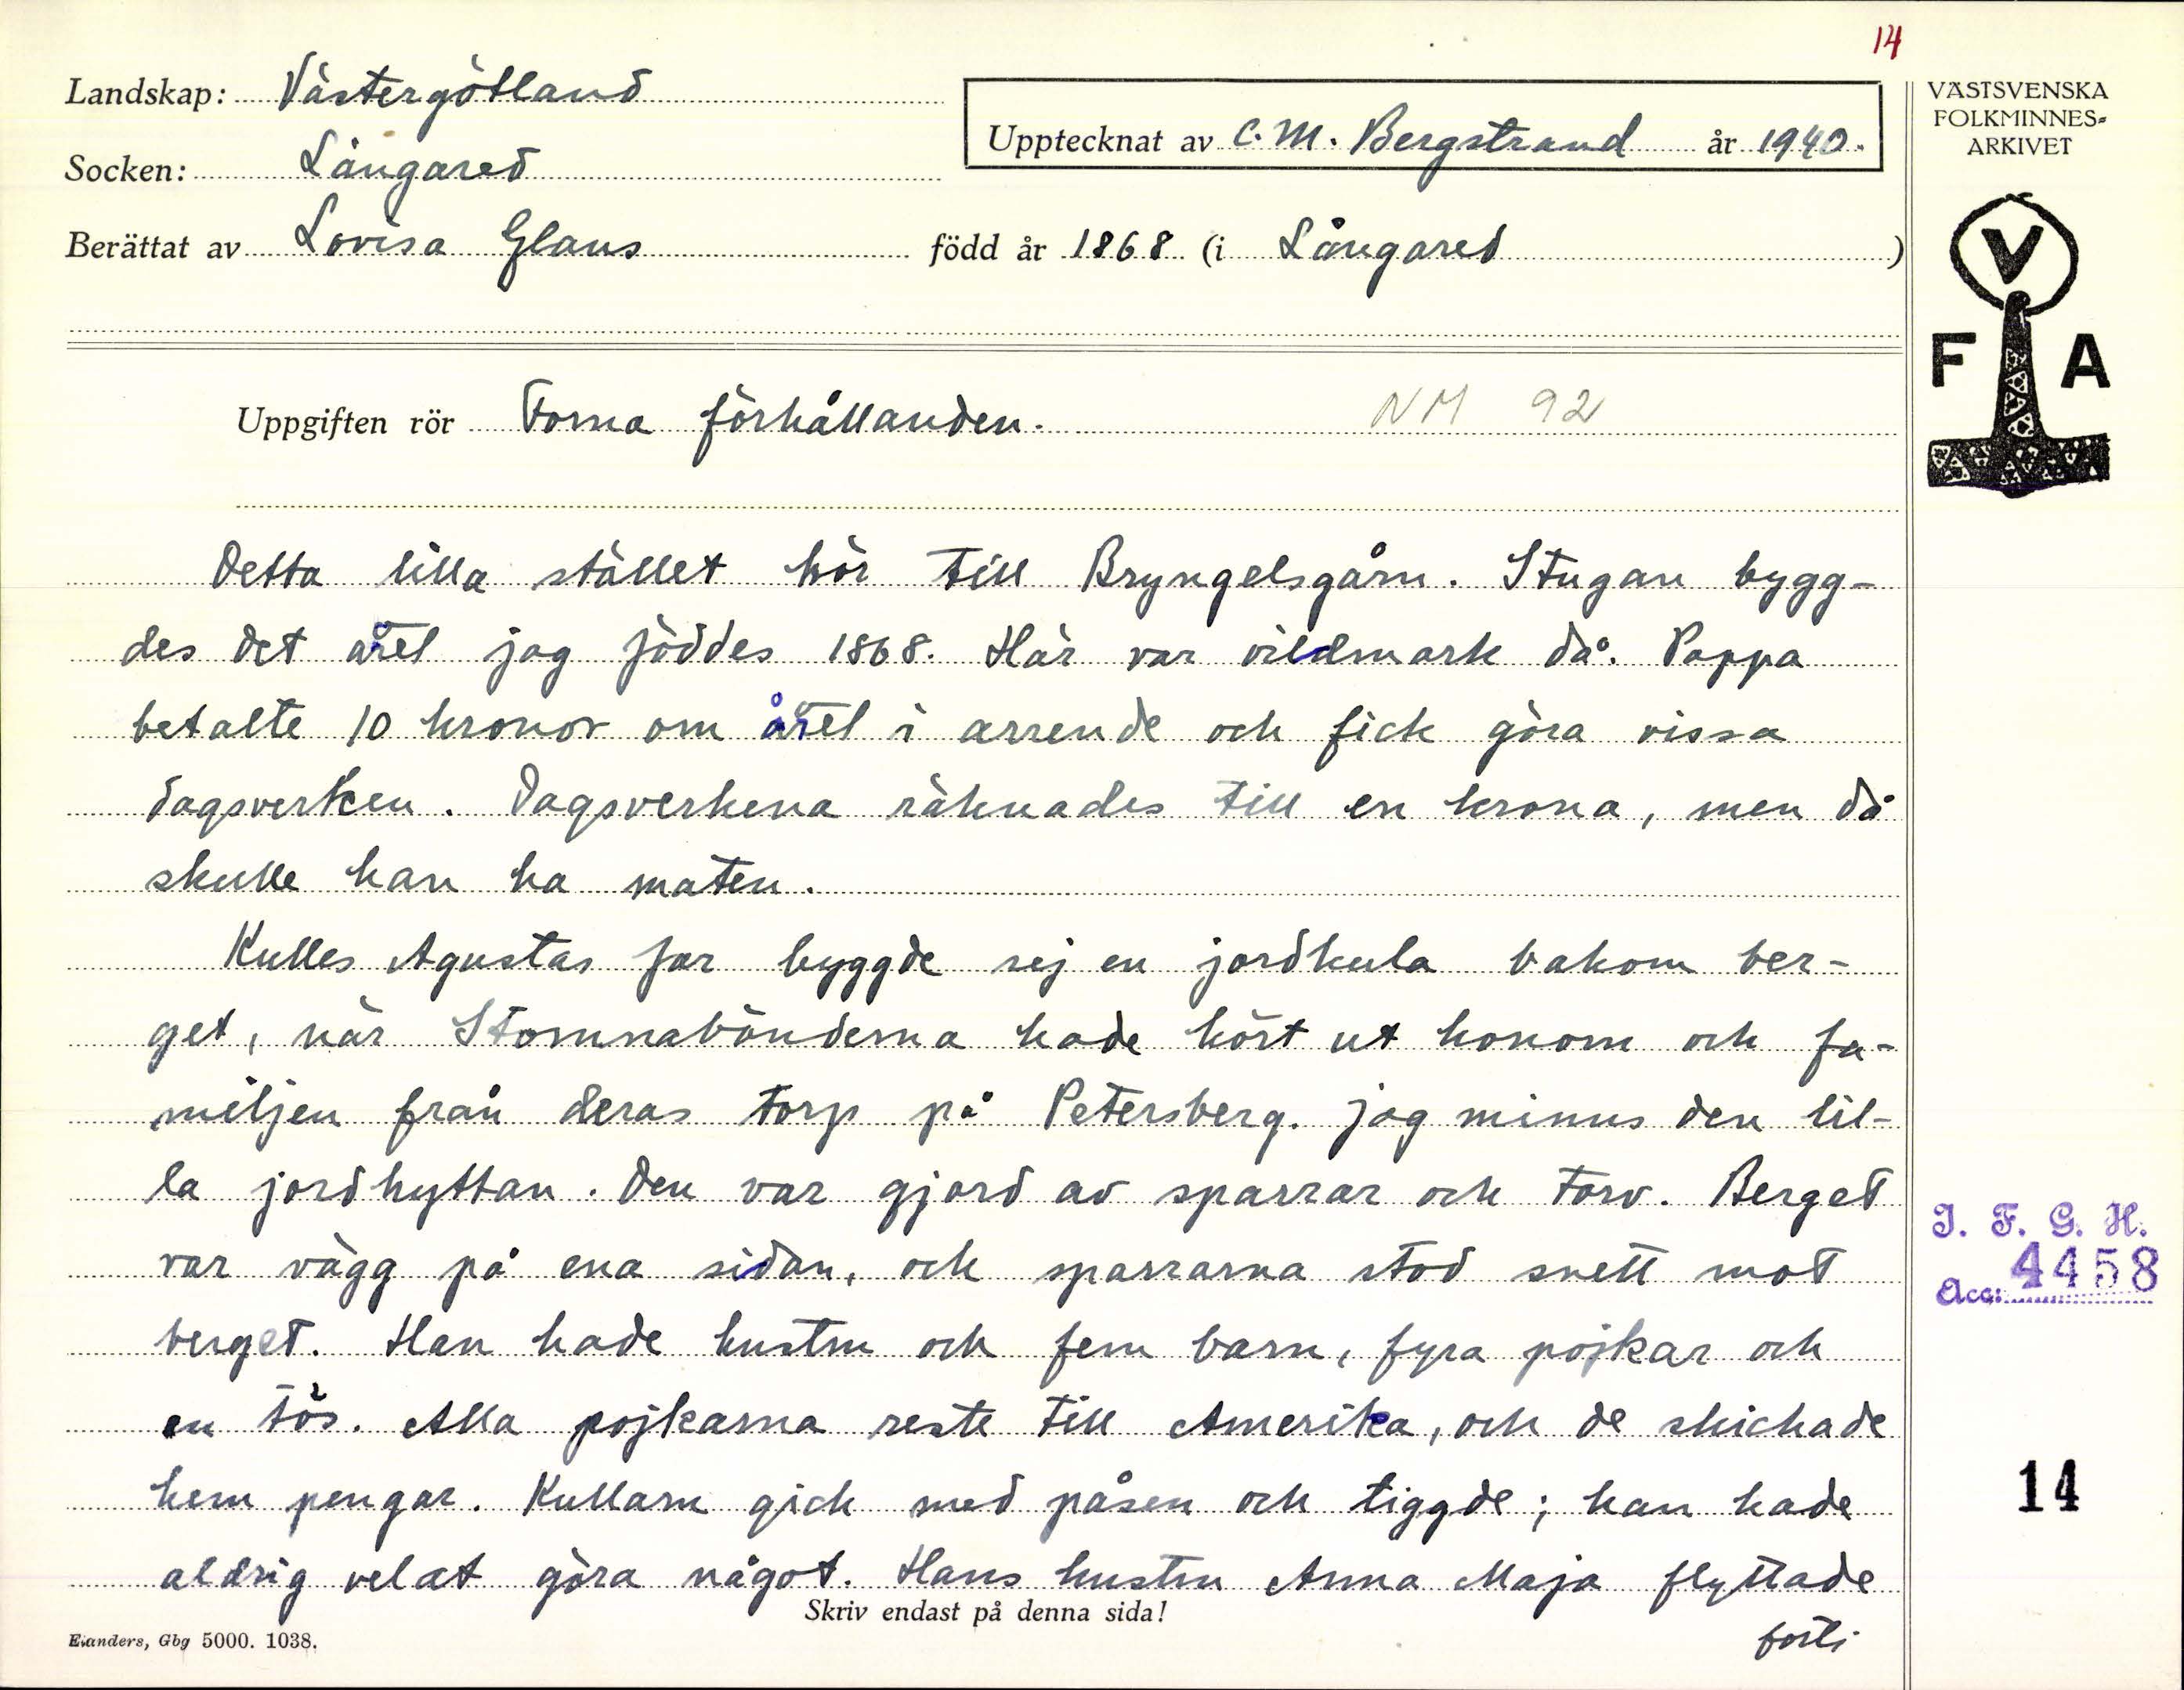 14
Landskap: Västergötland
Upptecknat av C. M. Bergstrand år 1940.
Socken: Långared
Berättat av Lovisa Glans född år 1868 (i Långared )
VÄSTSVENSKA
FOLKMINNES-
ARKIVET
V
F A
Uppgiften rör Forna förhållanden. NM 92
Detta lilla stället hör till Bryngelsgårn. Stugan bygg-
des det årel jag föddes 1868. Här var vildmark då. Pappa
betalte 10 kronor om årel i arrende och fick göra vissa
dagsverken. Dagsverkena räknades till en krona, men då
skulle han ha maten.
Kulles Agustas far byggde sej en jordkula bakom ber-
get, när Stomnabönderna hade kört ut honom och fa-
miljen från deras torp på Petersberg. Jag minns den lil-
la jordhyttan. Den var gjord av sparrar och torv. Berget
var vägg på ena sidan, och sparrarna stod snett mot
berget. Han hade hustru och fem barn, fyra pojkar och
en tös. Alla pojkarna reste till Amerika, och de skickade
hem pengar. Kullarn gick med påsen och tiggde; han hade
aldrig velat göra något. Hans hustru Anna Maja flyttade
forti
Skriv endast på denna sida!
Elanders, Gbg 5000. 1038.
I. F. G. H.
Acc: 4458
14